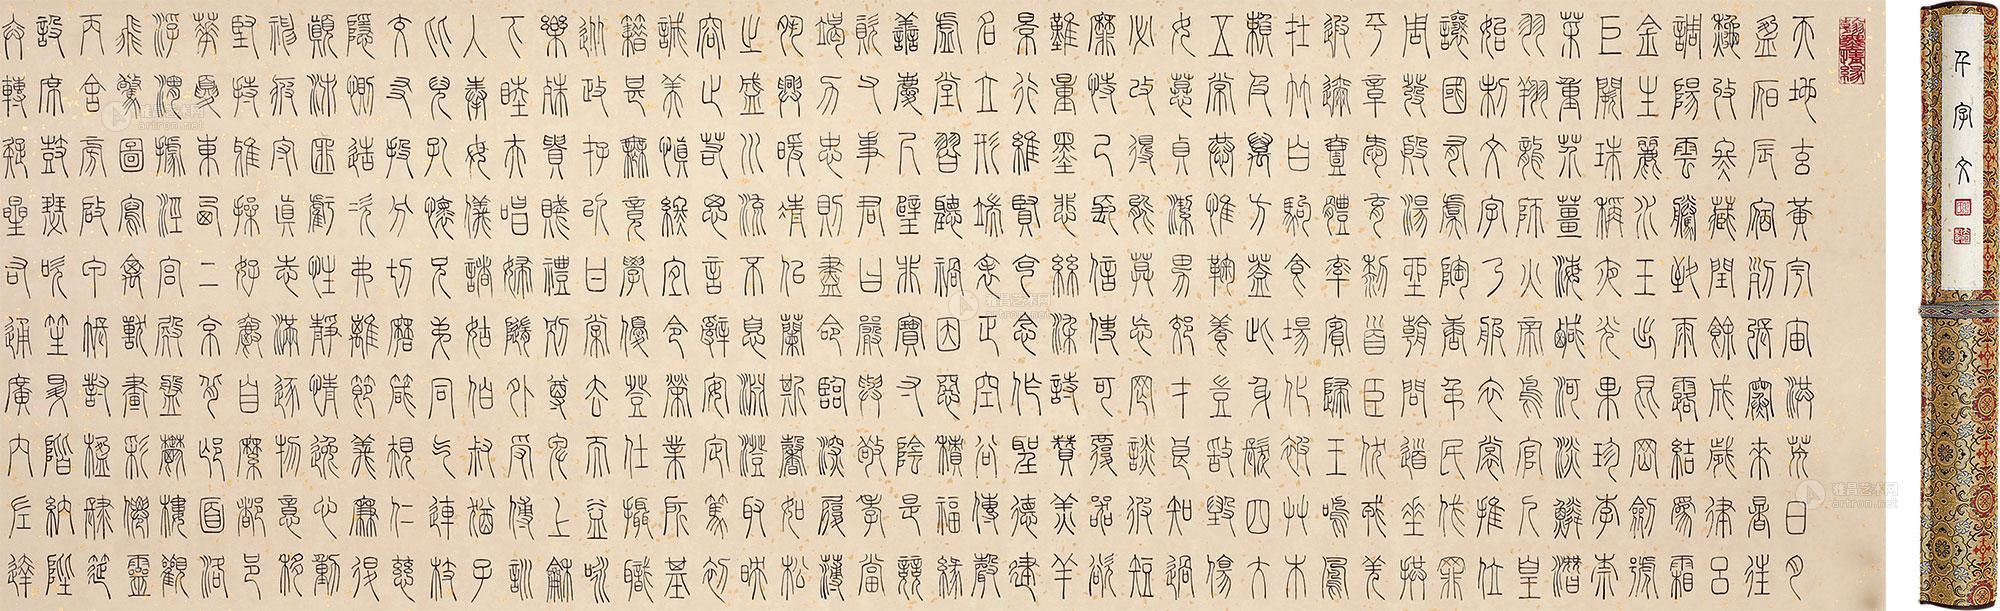 翰墨情緣
天地玄黃宇宙洪荒日月
盈昃辰宿列張寒來暑往
秋收冬藏閏餘成歲律呂
調陽雲騰致雨露結為霜
金生麗水玉出崑岡劍號
巨闕珠稱夜光果珍李柰
菜重芥薑海鹹河淡鱗潛
羽翔龍師火帝鳥官人皇
始制文字乃服衣裳推位
讓國有虞陶唐弔民伐罪
周發殷湯坐朝問道垂拱
平章愛育黎首臣伏戎羌
遐邇壹體率賓歸王鳴鳳
在竹白駒食場化被草木
賴及萬方蓋此身髮四大
五常恭惟鞠養豈敢毀傷
女慕貞潔男效才良知過
必改得能莫忘罔談彼短
靡恃己長信使可覆器欲
難量墨悲絲染詩讚羔羊
景行維賢克念作聖德建
名立形端表正空谷傳聲
虛堂習聽禍因惡積福緣
善慶尺璧非寶寸陰是競
資父事君曰嚴與敬孝當
竭力忠則盡命臨深履薄
夙興暖清似蘭斯馨如松
之盛川流不息淵澄取映
容止若思言辭安定篤初
誠美慎終宜令榮業所基
籍甚無竟學優登仕攝職
從政存以甘棠去而益詠
樂殊貴賤禮別尊卑上和
下睦夫唱婦隨外受傅訓
入奉母儀諸姑伯叔猶子
比兒孔懷兄弟同氣連枝
交友投分切磨箴規仁慈
隱惻造次弗離節義廉退
顛沛匪虧性靜情逸心動
神疲守真志滿逐物意移
堅持雅操好爵自縻都邑
華夏東西二京背邙面洛
浮渭據涇宮殿盤鬱樓觀
飛驚圖寫禽獸畫彩僊靈
丙舍傍啟甲帳對楹肆筵
設席鼓瑟吹笙升階納陛
弁轉疑星右通廣內左達
千字文
雅昌艺术网
artron.net